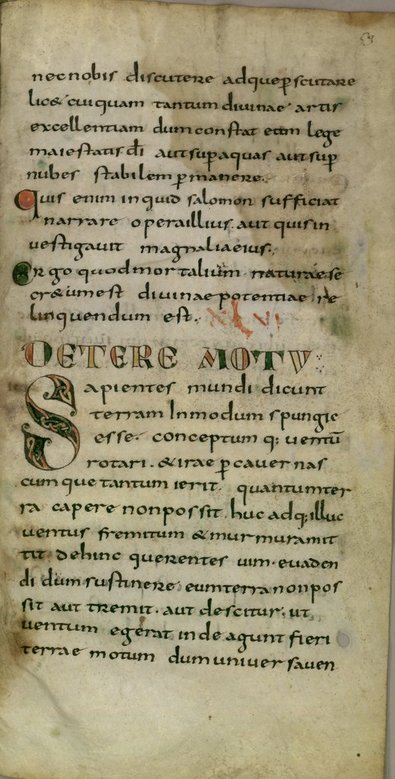 nec nobis discutere adque pscutare
lic& cuiquam tantum divinae artis
excellentiam dum constat eum lege
maiestatis di aut sup aquas aut sup
nubes stabilem p manere.
Quis enim inquid salomon sufficiat
narrare opera illius. aut quis in
vestigavit magnalia eius.
Ergo quod mortalium naturae se
cr&um est divinae potentiae re
linquendum est. XLVI
DE TERE MOTU
Sapientes mundi dicunt
terram In modum spungie
esse. conceptum q; ventū
rotari. & irae p cavernas
cum que tantum ierit. quantum ter
ra capere non possit. huc adq; illuc
ventus fremitum & murmura mit
tit. dehinc querentes vim evaden
di dum sustinere eum terra non pos
sit aut tremit. aut descitur. ut
ventum egerat inde agunt fieri
terrae motum dum universa ven